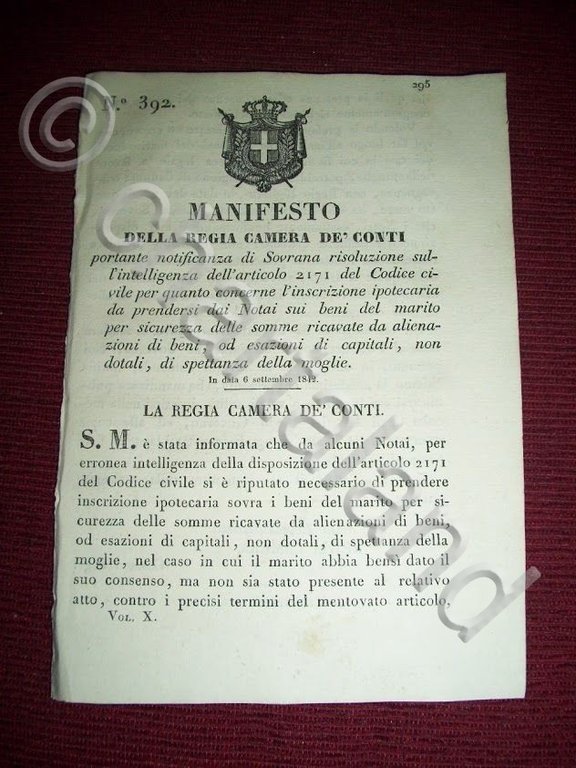 295
N.º 392.
MANIFESTO
DELLA REGIA CAMERA DE' CONTI
portante notificanza di Sovrana risoluzione sul-
l'intelligenza dell'articolo 2171 del Codice ci-
vile per quanto concerne l'inscrizione ipotecaria
da prendersi dai Notai sui beni del marito
per sicurezza delle somme ricavate da aliena-
zioni di beni, od esazioni di capitali, non
dotali, di spettanza della moglie.
In data 6 settembre 1842.
LA REGIA CAMERA DE' CONTI.
S. M. è stata informata che da alcuni Notai, per
erronea intelligenza della disposizione dell'articolo 2171
del Codice civile si è riputato necessario di prendere
inscrizione ipotecaria sovra i beni del marito per si-
curezza delle somme ricavate da alienazioni di beni,
od esazioni di capitali, non dotali, di spettanza della
moglie, nel caso in cui il marito abbia bensì dato il
suo consenso, ma non sia stato presente al relativo
atto, contro i precisi termini del mentovato articolo,
Vol. X.
© Chartaland